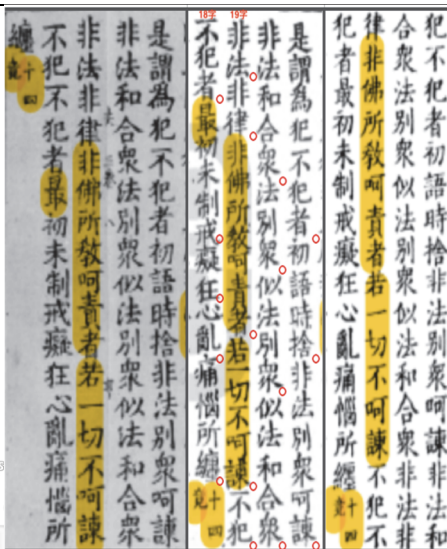 犯不犯者初語時捨非法別衆呵諫非法和
合衆法別衆似法別衆似法和合衆非法非
律非佛所教呵責者若一切不呵諫不犯不
犯者最初未制戒癡狂心亂痛惱所纏十四竟
18字 19字
是謂為犯不犯者初語時捨非法別衆呵諫
非法和合衆法別衆似法別衆似法和合衆
非法非律非佛所教呵責者若一切不呵諫不犯
不犯者最初未制戒癡狂心亂痛惱所纏十四竟
是謂為犯不犯者初語時捨非法別衆呵諫
非法和合衆法別衆似法別衆似法和合衆
非法非律非佛所教呵責者若一切不呵諫
不犯不犯者最初未制戒癡狂心亂痛惱所
纏十四竟